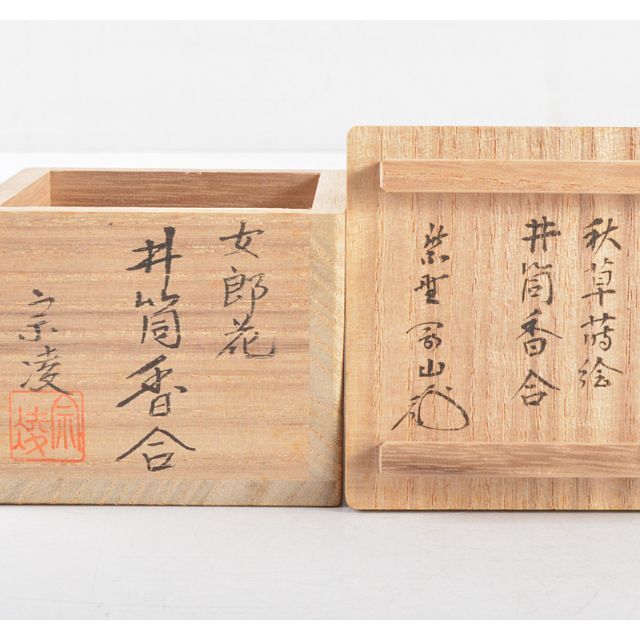 女郎花
井筒香合
宗凌
宗凌
秋草蒔絵
井筒香合
紫野